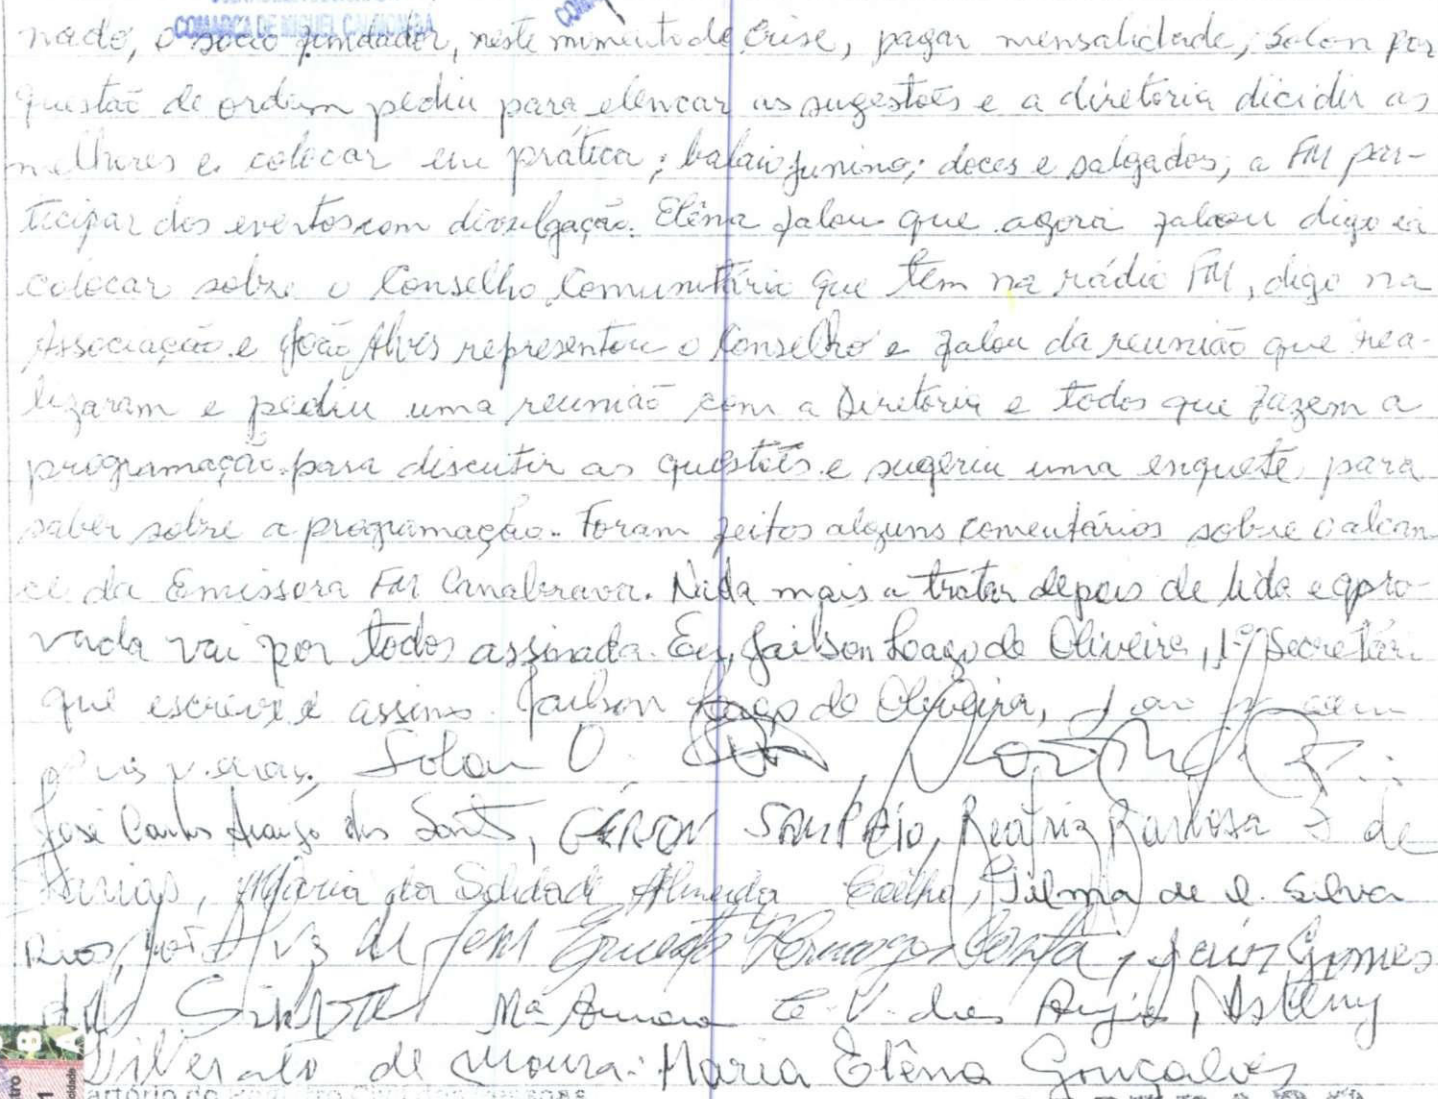 COMARCA DE MIGUEL CALMON-BA
nado, o sócio fundador, neste momento de crise, pagar mensalidade; Solon por
questão de ordem pediu para elencar as sugestões e a diretoria dicidir as
melhores e colocar em prática; balaio junino; doces e salgados; a FM par-
ticipar dos eventos com divulgação. Elêna falou que agora falou digo ia
colocar sobre o Conselho Comunitário que tem na rádio FM, digo na
Associação e João Alves representou o Conselho e falou da reunião que rea-
lizaram e pediu uma reunião com a Diretoria e todos que fazem a
programação para discutir as questões e sugeriu uma enquete para
saber sobre a programação. Foram feitos alguns comentários sobre o alcan
ce da Emissora FM Canabrava. Nada mais a tratar depois de lida e apro-
vada vai por todos assinada. Eu, Jailson Lago de Oliveira, 1º Secretári
que escrevi e assino. Jailson Lago de Oliveira,
Solon O.
José Carlos Araújo dos Santos, GERSON SAMPAIO, Beatriz Barbosa F de
Farias, Maria da Soledade Almeida Coelho, Gilma de O. Silva
Rios, João Alves de Ernesto Hermogenes Costa, Gomes
da SILVA Mª Aurora C. V. dos Anjos,
Gilberato de Moura. Maria Elêna Gonçalves